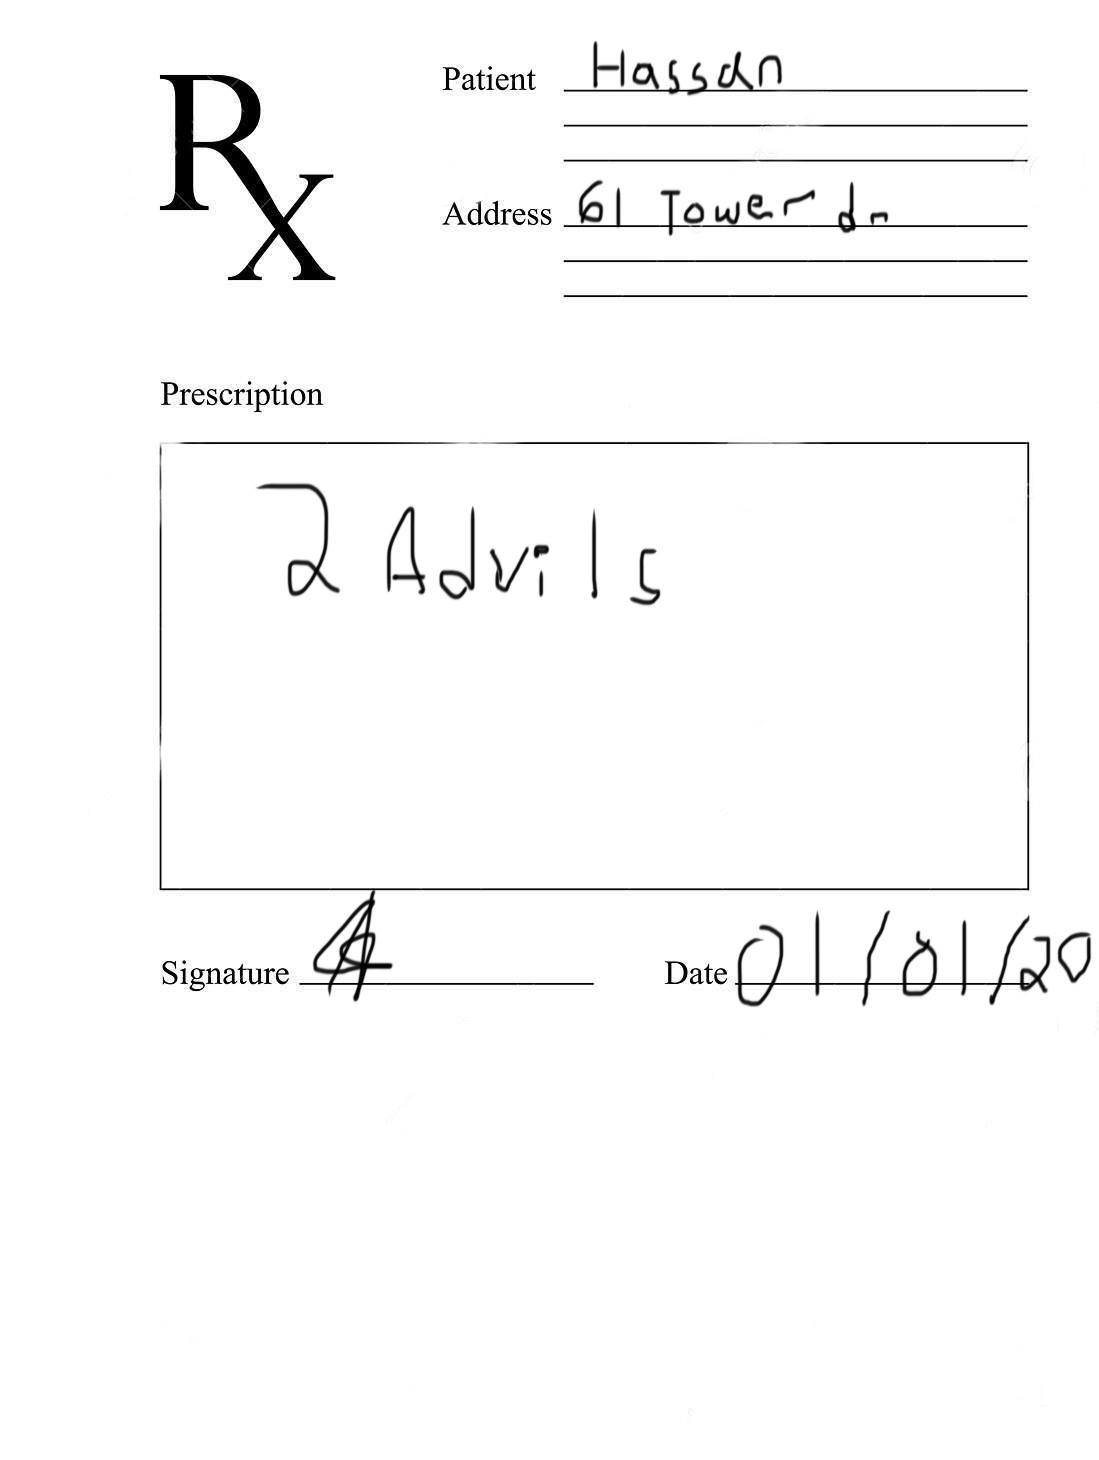 Rx
Patient Hassan
Address 61 Tower dr
Prescription
2 Advils
Signature
Date 01/01/20